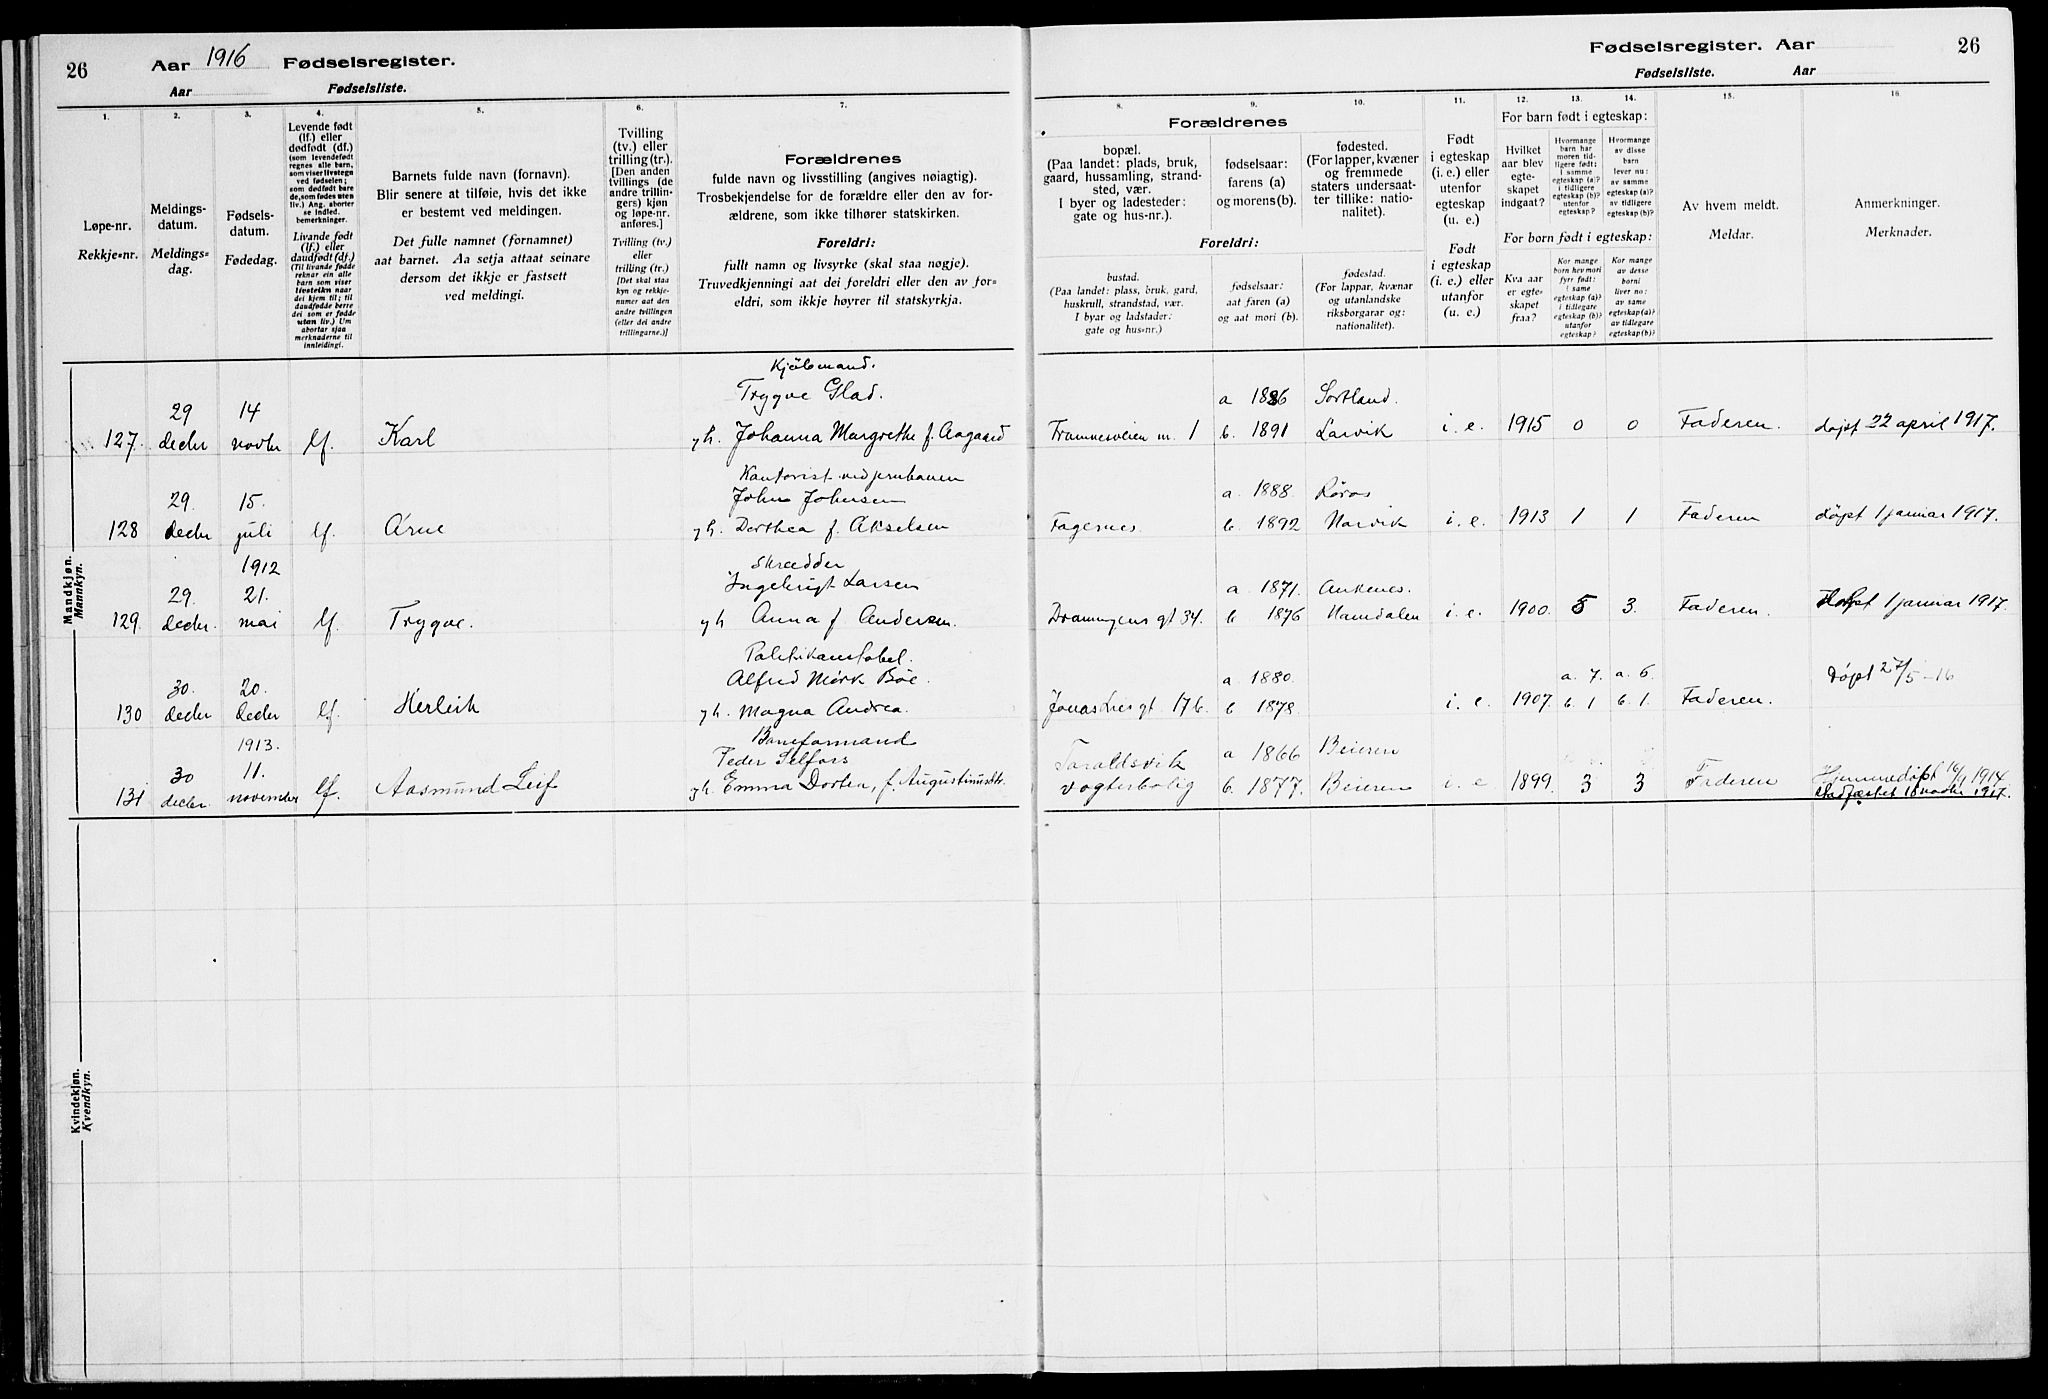 26
Aar 1916 Fødselsregister.
Aar Fødselsliste.
1.
Løpe-nr.
Rekkje=nr.
2.
Meldings-
datum.
Meldings=
dag.
3.
Fødsels-
datum.
Fødedag.
4.
Levende født
(lf.) eller
dødfødt (df.)
(som levendefødt
regnes alle barn,
som viser livstegn
ved fødselen;
som dødfødt bare
de, som fødes uten
liv.) Ang. aborter
se indled.
bemerkninger.
Livande født
(lf.) eller
daudfødt (df.)
(Til livande fødde
reknar ein alle
barn som viser
livsteikn naar
dei kjem til; til
daudfødde berre
dei som er fødde
utan liv.) Um
abortar sjaa
merknaderne til
innleidingi.
5.
Barnets fulde navn (fornavn).
Blir senere at tilføie, hvis det ikke
er bestemt ved meldingen.
Det fulle namnet (fornamnet)
aat barnet. Aa setja attaat seinare
dersom det ikkje er fastsett
ved meldingi.
6.
Tvilling
(tv.) eller
trilling (tr.).
[Den anden
tvillings (de
andre trillin-
gers) kjøn
og løpe-nr.
anføres.]
Tvilling (tv.)
eller
trilling (tr.)
[Det skal staa
kyn og rekkje-
numer aat den
andre tvillingen
(eller dei andre
trillingarne.)]
7.
Forældrenes
fulde navn og livsstilling (angives nøiagtig).
Trosbekjendelse for de forældre eller den av for-
ældrene, som ikke tilhører statskirken.
Foreldri:
fullt namn og livsyrke (skal staa nøgje).
Truvedkjenningi aat dei foreldri eller den av for=
eldri, som ikkje høyrer til statskyrkja.
Fødselsregister. Aar
26
Fødselsliste. Aar
Forældrenes
8.
bopæl.
(Paa landet: plads, bruk,
gaard, hussamling, strand-
sted, vær.
I byer og ladesteder:
gate og hus-nr.).
9.
fødselsaar:
farens (a)
og morens (b).
10.
fødested.
(For lapper, kvæner
og fremmede
staters undersaat-
ter tillike: natio-
nalitet).
Foreldri:
bustad.
(Paa landet: plass, bruk, gard,
huskrull, strandstad, vær.
I byar og ladstader:
gate og hus=nr.)
fødselsaar:
aat faren (a)
og aat mori (b).
fødestad.
(For lappar, kvænar
og utanlandske
riksborgarar og:
nationalitet).
11.
Født
i egteskap
(i. e.) eller
utenfor
egteskap
(u. e.)
Født
i egteskap
(i. e.) eller
utanfor
(u. e.)
For barn født i egteskap:
12.
Hvilket
aar blev
egte-
skapet
indgaat?
13.
Hvormange
barn har
moren tid-
ligere født:
i samme
egteskap (a)?
i tidligere
egteskap (b)?
utenfor
egteskap?
14.
Hvormange
av disse
barn
lever nu:
av samme
egteskap (a)?
av tidligere
egteskap (b)?
For born født i egteskap:
Kva aar
er egte=
skapet
fraa?
Kor mange
born hev mori
fyrr født:
i same
egteskap (a)?
i tidlegare
egteskap (b)?
utanfor
egteskap?
Kor mange
av desse
borni
liver no:
av same
egteskap (a)?
av tidlegare
egteskap (b)?
15.
Av hvem meldt.
Meldar.
16.
Anmerkninger.
Merknader.
Mandkjøn.
Mannkyn.
Kjøbmand.
Trygve Glad.
a 1886 Sortland.
29 14
127. decbr novbr lf. Karl gh. Johanna Margrethe f. Aagaard Framnesveien nr. 1 b. 1891 Larvik i. e. 1915 0 0 Faderen. døpt 22 april 1917.
Kontorist ved jernbanen
29. 15. John Johnsen a. 1888. Røros
128 decbr juli lf. Arne gh. Dorthea f. Akselsen Fagernes. b. 1892 Narvik i. e. 1913 1 1 Faderen døpt 1 januar 1917.
1912 Skrædder
29. 21. Ingebrigt Larsen a. 1871. Ankenes.
129. decbr. mai lf. Trygve. gh Anna f Andersen. Dronningens gt 34. b 1876 Namdalen i. e. 1900. 5 3. Faderen. Døpt 1 januar 1917.
Politikonstabel.
30. 20. Alfred Mörk Böe. a. 1880. a. 7. a. 6. Døpt 27/5-16
130 decbr decbr lf. Herleik gh. Magna Andrea. Jonas Lies gt. 17 b. b 1878. i. e. 1907. b. 1 b. 1. Faderen.
1913. Baneformand
30 11. Peder Selfors Taraldsvik a 1866 Beieren
131 decbr. november lf. Aasmund Leif gh. Emma Dortea, f. Augustinusdtr. vogterbolig b. 1877. Beieren i. e 1899. 3 3 Faderen Hjemmedøpt 16/9 1914
stadfæstet 18 novbr 1917.
Kvindekjøn.
Kvendkyn.